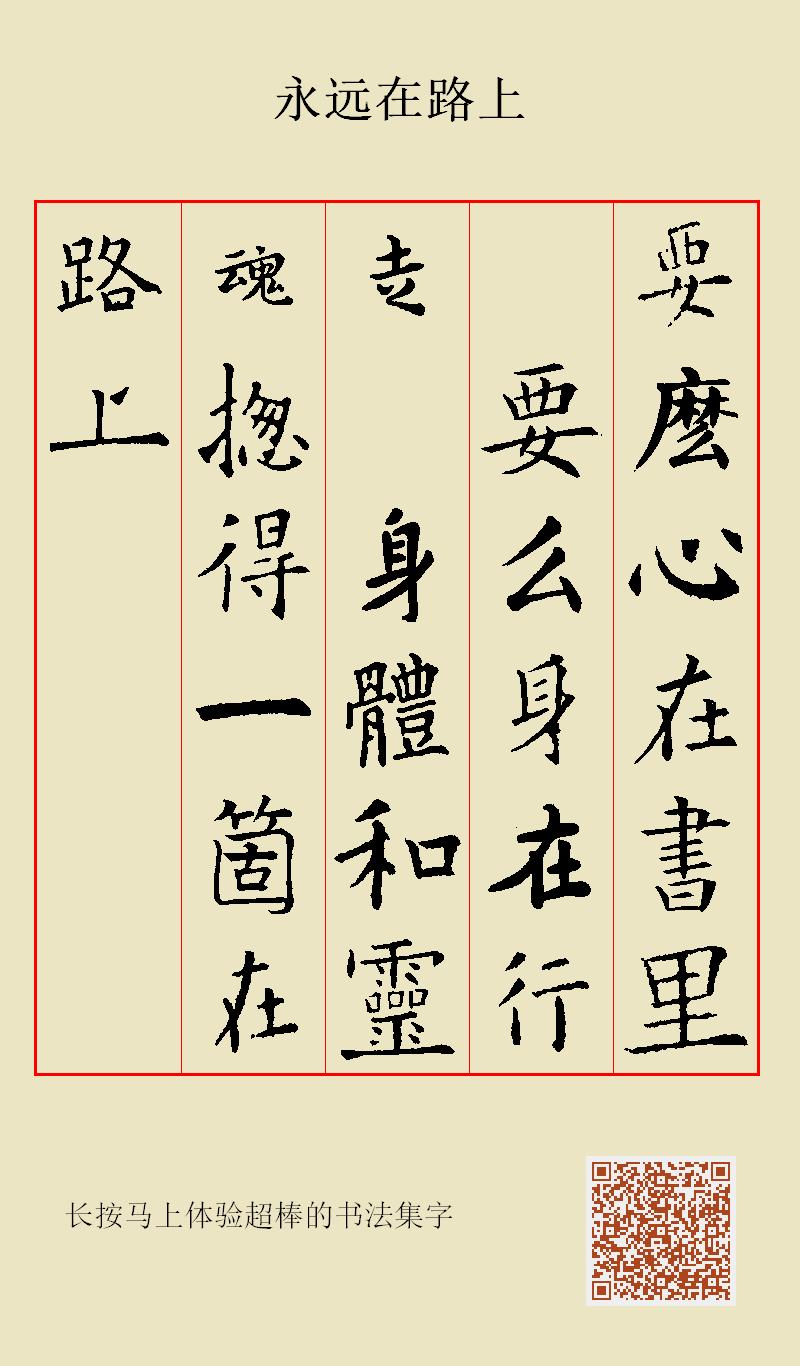 永远在路上
要麼心在書里
要么身在行
走 身體和靈
魂摠得一箇在
路上
长按马上体验超棒的书法集字